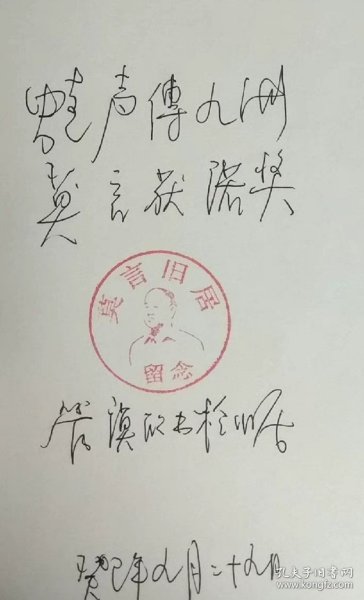 声傳九洲
莫言获诺奖
莫言旧居
留念
管谟欣书於旧居
癸巳年九月二十九日
孔夫子旧书网
www.kongfz.com